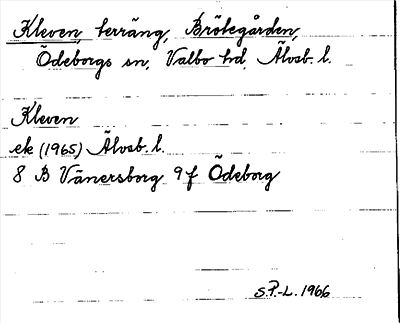 Kleven, terräng, Brötegården,
Ödeborgs sn, Valbo hd, Älvsb. l.
Kleven
ek (1965) Älvsb. l.
8 B Vänersborg 9 f Ödeborg
S.P.-L. 1966